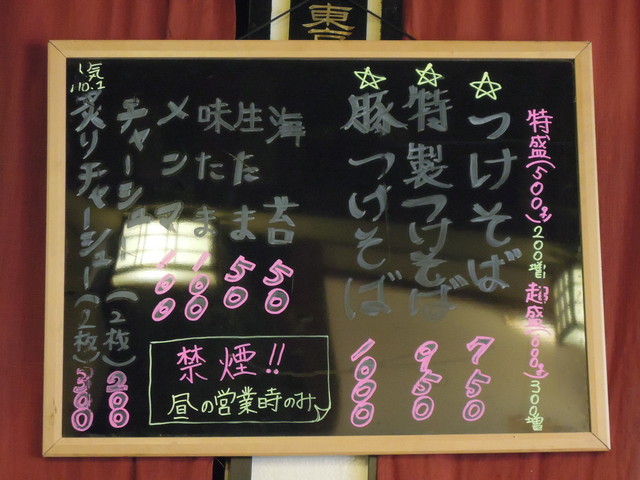 東京
特盛(500g)200増 超盛(800g)300増
☆つけそば 750
☆特製つけそば 950
☆豚つけそば 1000
海苔 50
生たま 50
味たま 100
メンマ 100
チャーシュー(2枚) 200
人気No.1
炙りチャーシュー(2枚) 300
禁煙!!
昼の営業時のみ